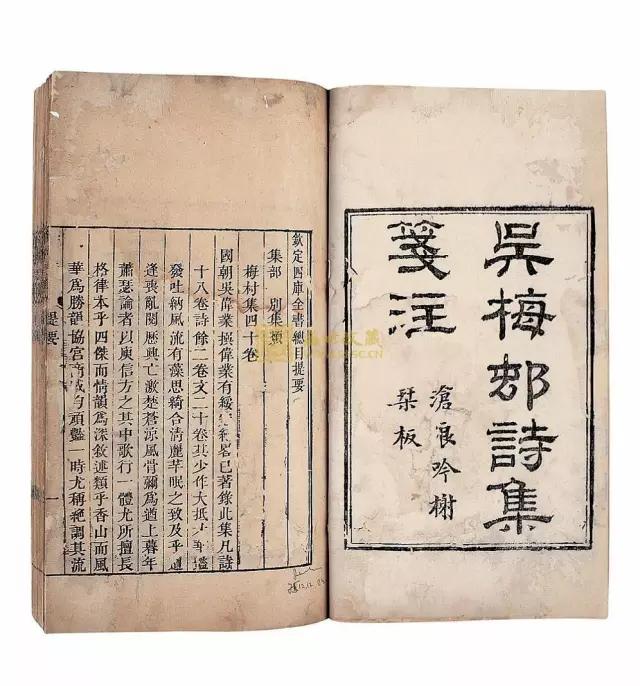 吳梅邨詩集
箋注
滄浪吟榭
琹板
欽定四庫全書總目提要
集部 別集類
梅村集四十卷
國朝吳偉業撰偉業有綏寇紀畧已著錄此集凡詩
十八卷詩餘二卷文二十卷其少作大抵才
發吐納風流有藻思綺合清麗芊眠之致及乎遭
逢喪亂閱歷興亡激楚蒼涼風骨彌爲遒上暮年
蕭瑟論者以庾信方之其中歌行一體尤所擅長
格律本乎四傑而情韻爲深敘述類乎香山而風
華爲勝韻協宮商感均頑豔一時尤稱絕調其流
提要
一